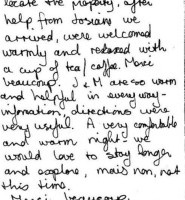 locate the property, after
help from Josiane we
arrived, were welcomed
warmly and relaxed with
a cup of tea/coffee. Merci
beaucoup. J & M are so warm
and helpful in every way -
information, directions were
very useful. A very comfortable
and warm night we
would love to stay longer
and explore, mais non, not
this time.
Merci beaucoup